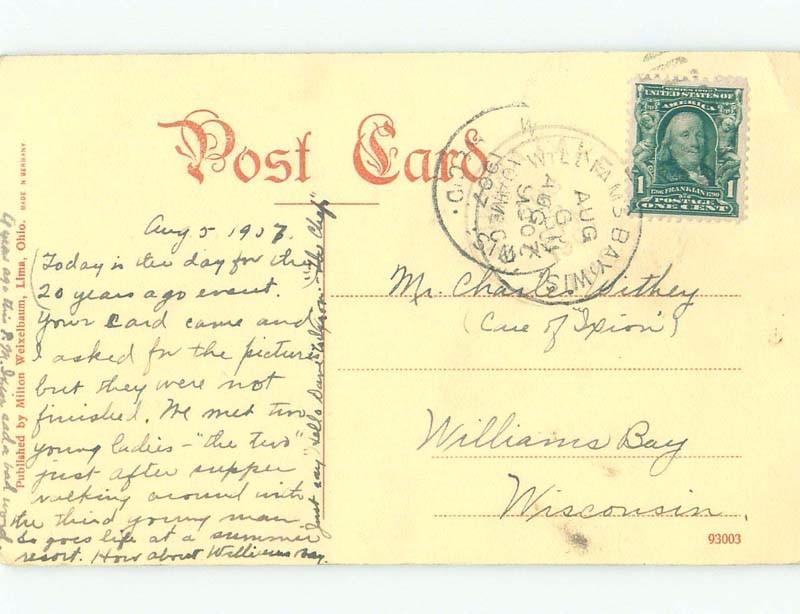 Post Card
SERIES 1902
UNITED STATES OF
AMERICA
1706 FRANKLIN 1790
1 1
POSTAGE
ONE CENT
WILLIAMS BAY WIS
AUG
1907
Aug 5 1907.
Today is the day for the
20 years ago event.
Your card came and
I asked for the picture
but they were not
finished. We met two
young ladies - "the two"
just after supper
walking around with
the third young man
So goes life at a summer
resort. How about Williams Bay.
Just say "Hello Dave"
"the Chef"
Published by Milton Weixelbaum, Lima, Ohio. MADE IN GERMANY
year ago this P.M. said a bad word
Mr. Charles Pithey
(Care of "Ixion")
Williams Bay
Wisconsin.
93003